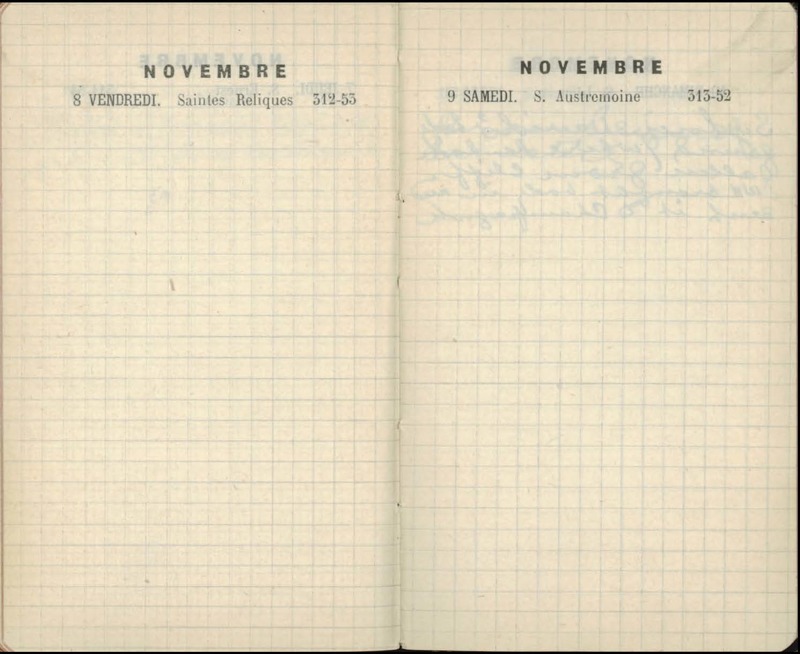 NOVEMBRE
8 VENDREDI. Saintes Reliques 312-53
NOVEMBRE
9 SAMEDI. S. Austremoine 313-52